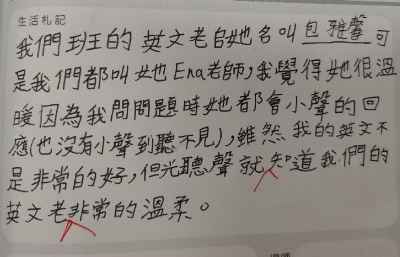 生活札記
我們班的英文老師她名叫包雅馨可
是我們都叫她Ena老師,我覺得她很溫
暖因為我問問題時她都會小聲的回
應(也沒有小聲到聽不見),雖然我的英文不
是非常的好,但光聽聲就知道我們的
英文老非常的溫柔。